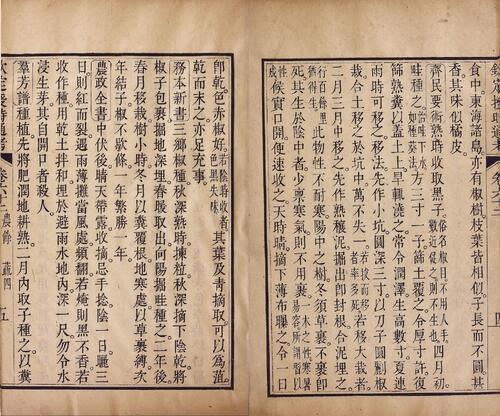 食中東海諸島亦有椒樹枝葉皆相似子長而不圓甚
香其味似橘皮。
齊民要術熟時收取黑子俗名椒目不用人手數近促之則不生也四月初
畦種之治畦下水如種葵法方三寸一子篩土覆之令厚寸許復
篩熟糞以蓋土上旱輒澆之常令潤澤生高數寸夏連
雨時可移之移法先作小坑圓深三寸以刀子圓劚椒
栽合土移之於坑中萬不失一若拔而移者率多死若移大栽者
二月三月中移之先作熟穰泥掘出卽封根合泥埋之
行百餘里猶得生此物性不耐寒陽中之樹冬須草裹不裹卽
死其生於陰中者少稟寒氣則不用裹木之性寒暑異容所謂習以
性成候實口開便速收之天時晴摘下薄布曝之令一日
卽乾色赤椒好若陰時收者色黑失味其葉及青摘取可以為菹
乾而末之亦足充事。
務本新書三鄉椒種秋深熟時揀粒秋深摘下陰乾將
椒子包裹掘地深埋春暖取出向陽掘畦種之二年後
春月移栽樹小時冬月以糞覆根地寒處以草裹縛次
年結子椒不歇條一年繁勝一年
農政全書中伏後晴天帶露收摘忌手捻陰一日曬三
日則紅而裂遇雨薄攤當風處頻翻若罨則黑不香若
收作種用乾土拌和埋於避雨水地內深一尺勿令水
浸生芽其自開口者殺人。
羣芳譜種植先將肥潤地耕熟二月內取子種之以糞
欽定授時通考 卷六十二 農餘 蔬四 五